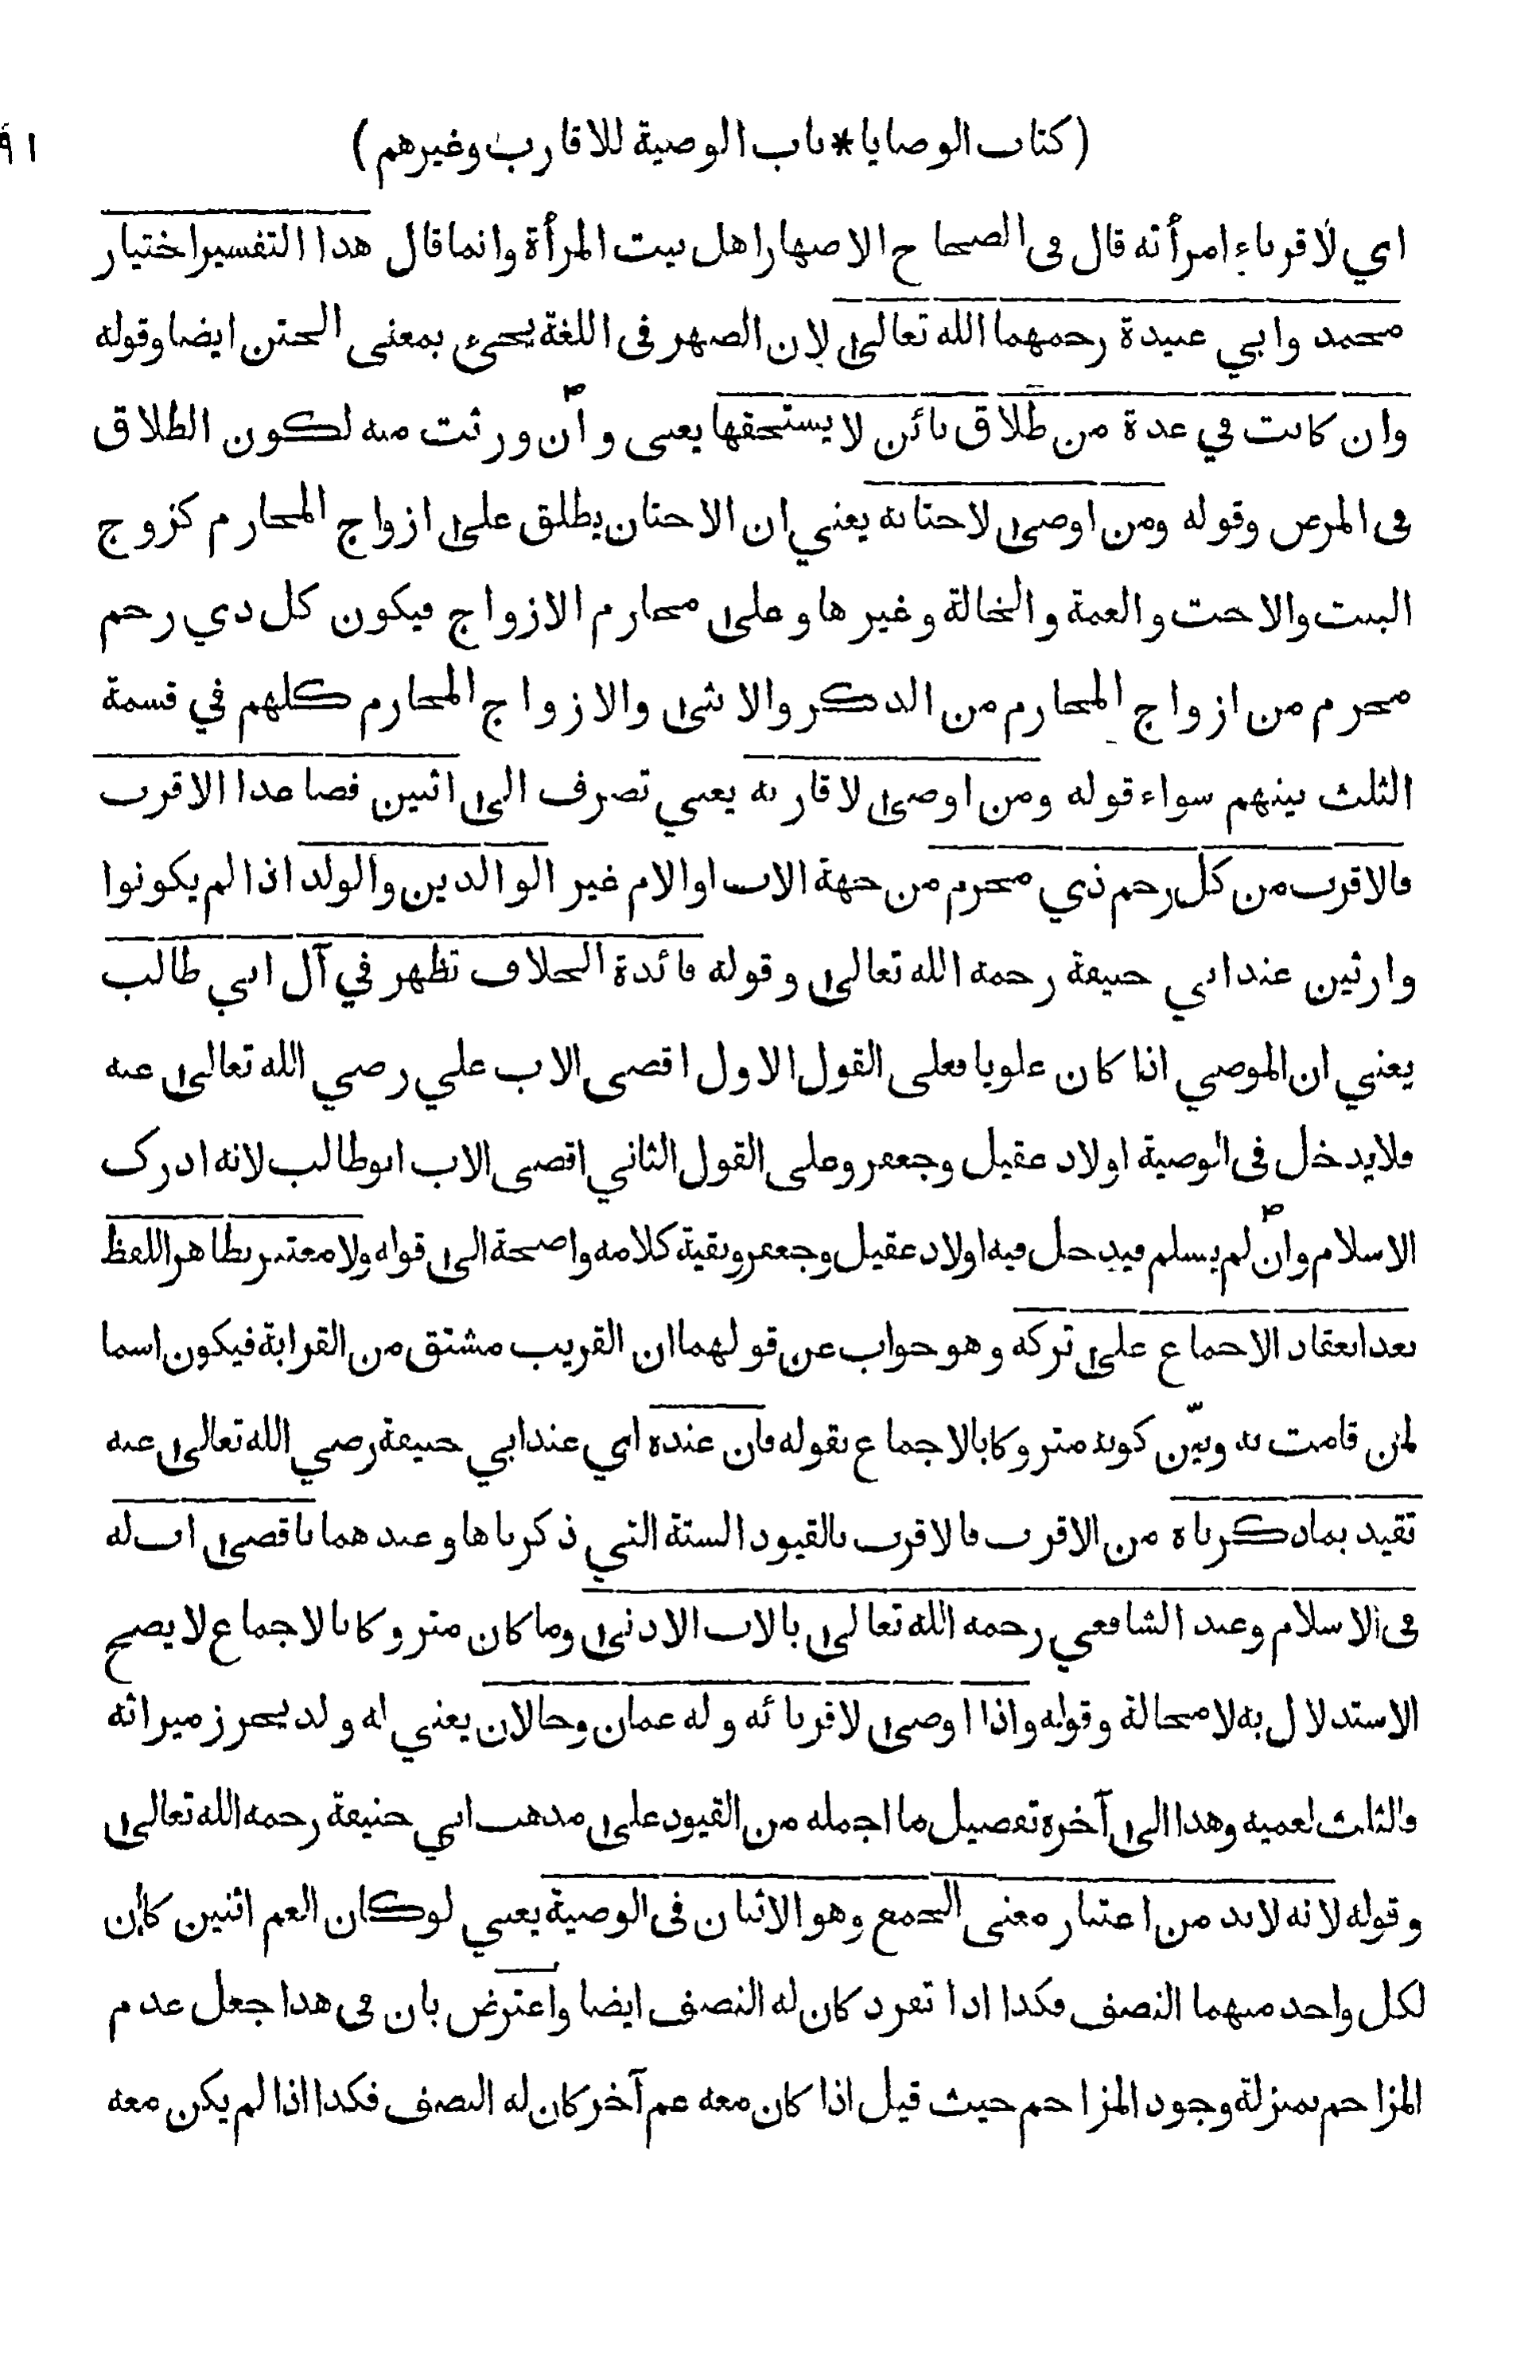 (كتاب الوصايا * باب الوصية للاقارب وغيرهم)
اي لاقرباء امرأته قال في الصحاح الاصهار اهل بيت المرأة وانما قال هذا التفسير اختيار
محمد وابي عبيدة رحمهما الله تعالى لان الصهر في اللغة يجيء بمعنى الختن ايضا وقوله
وان كانت في عدة من طلاق بائن لا يستحقها يعني وان ورثت منه لكون الطلاق
في المرض وقوله ومن اوصى لاختانه يعني ان الاختان يطلق على ازواج المحارم كزوج
البنت والاخت والعمة والخالة وغيرها وعلى محارم الازواج فيكون كل ذي رحم
محرم من ازواج المحارم من الذكر والانثى والازواج المحارم كلهم في قسمة
الثلث بينهم سواء قوله ومن اوصى لاقاربه يعني تصرف الى اثنين فصاعدا الاقرب
فالاقرب من كل رحم ذي محرم من جهة الاب او الام غير الوالدين والولد اذا لم يكونوا
وارثين عند ابي حنيفة رحمه الله تعالى وقوله فائدة الخلاف تظهر في آل ابي طالب
يعني ان الموصي اذا كان علويا فعلى القول الاول اقصى الاب علي رضي الله تعالى عنه
فلا يدخل في الوصية اولاد عقيل وجعفر وعلى القول الثاني اقصى الاب ابو طالب لانه ادرك
الاسلام وان لم يسلم فيدخل فيه اولاد عقيل وجعفر وبقية كلامه واضحة الى قوله ولا معتبر بظاهر اللفظ
بعد انعقاد الاجماع على تركه وهو جواب عن قولهما ان القريب مشتق من القرابة فيكون اسما
لمن قامت به وبيّن كونه متروكا بالاجماع بقوله فان عنده اي عند ابي حنيفة رضي الله تعالى عنه
تقيد بما ذكرناه من الاقرب فالاقرب بالقيود الستة التي ذكرناها وعندهما باقصى اب له
في الاسلام وعند الشافعي رحمه الله تعالى بالاب الادنى وما كان متروكا بالاجماع لا يصح
الاستدلال به لا محالة وقوله واذا اوصى لاقربائه وله عمان وخالان يعني له ولد يحرز ميراثه
فالثلث لعميه وهذا الى آخره تفصيل ما اجمله من القيود على مذهب ابي حنيفة رحمه الله تعالى
وقوله لانه لابد من اعتبار معنى الجمع وهو الاثنان في الوصية يعني لو كان العم اثنين كان
لكل واحد منهما النصف فكذا اذا تفرد كان له النصف ايضا واعترض بان في هذا جعل عدم
المزاحم بمنزلة وجود المزاحم حيث قيل اذا كان معه عم آخر كان له النصف فكذا اذا لم يكن معه